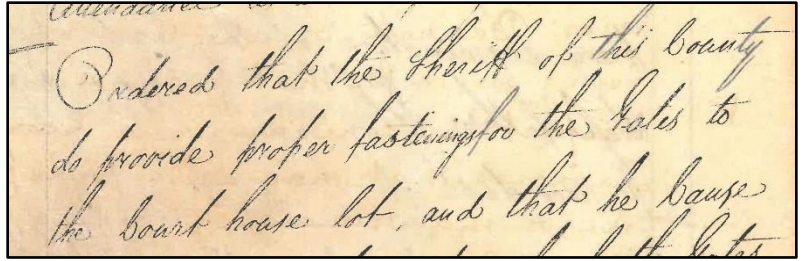 Ordered that the Sheriff of this County
do provide proper fastenings for the Gates to
the Court house lot, and that he Cause
the Gates